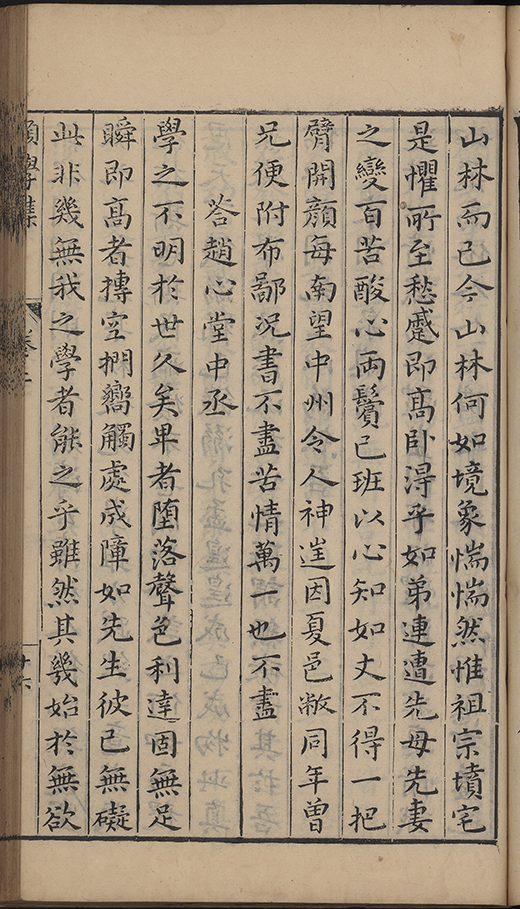 山林而已今山林何如境象惴惴然惟祖宗墳宅
是懼所至愁蹙即高臥得乎如弟連遭先母先妻
之變百苦酸心兩鬢已班以心知如丈不得一把
臂開顏每南望中州令人神遑因夏邑敝同年曾
兄便附布鄙況書不盡苦情萬一也不盡
答趙心堂中丞
學之不明於世久矣卑者墮落聲色利達固無足
瞬即高者摶空捫嚮觸處成障如先生彼已無礙
此非幾無我之學者能之乎雖然其幾始於無欲